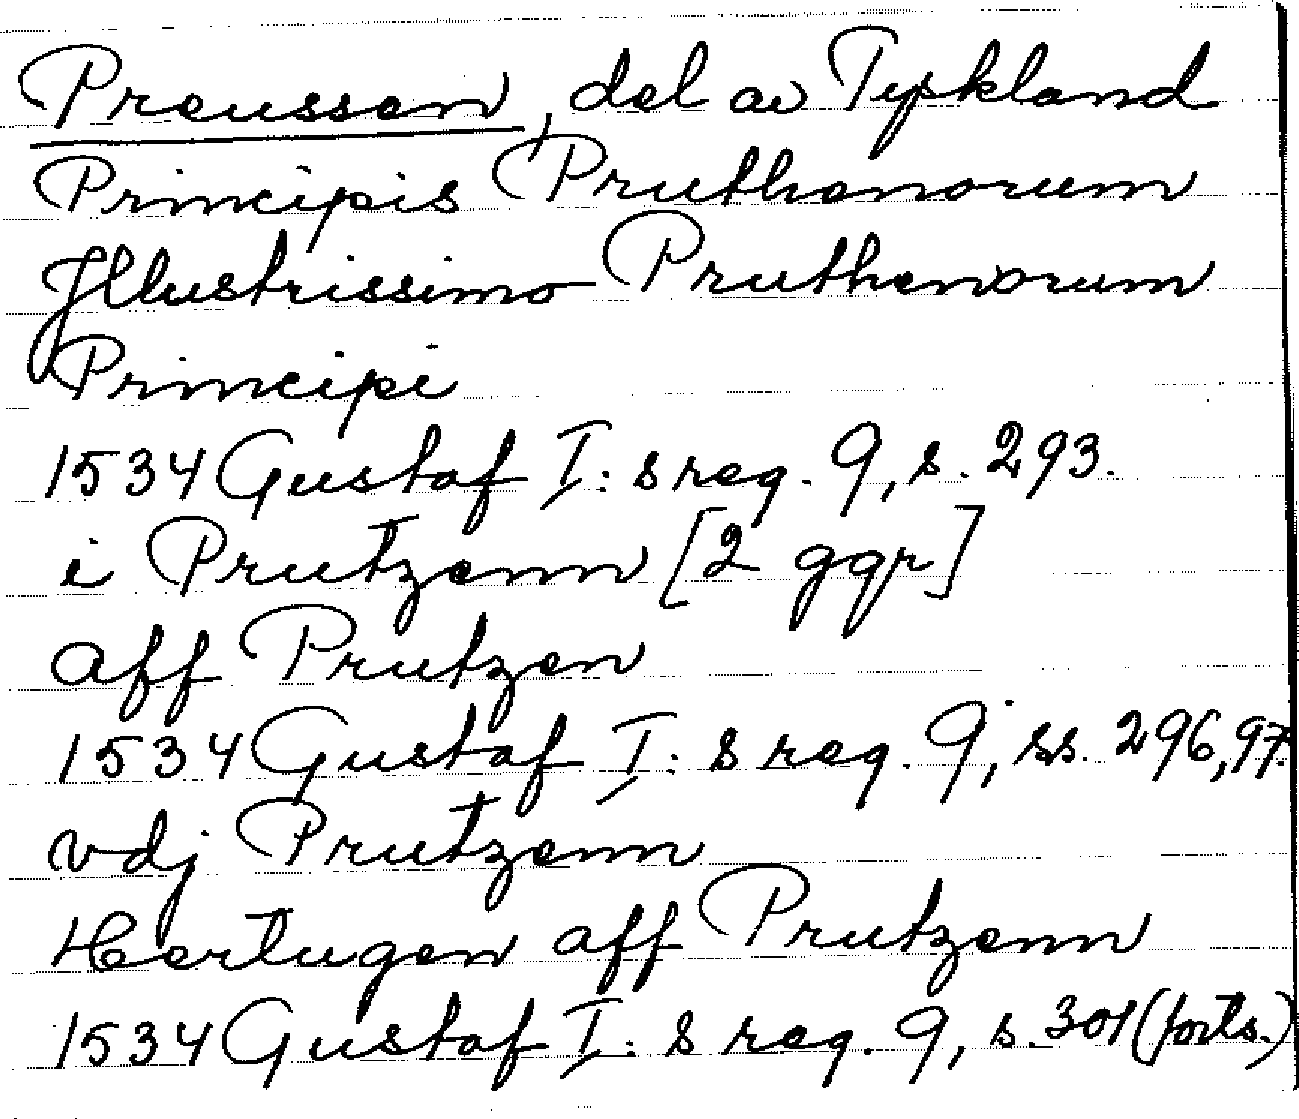 Preussen, del av Tyskland
Principis Pruthenorum
Illustrissimo Pruthenorum
Principi
1534 Gustaf I: s reg. 9, s. 293.
i Prutzenn [2 ggr]
aff Prutzen
1534 Gustaf I: s reg. 9, ss. 296, 97.
vdj Prutzenn
Hertugen aff Prutzenn
1534 Gustaf I: s reg. 9, s. 301 (forts.)